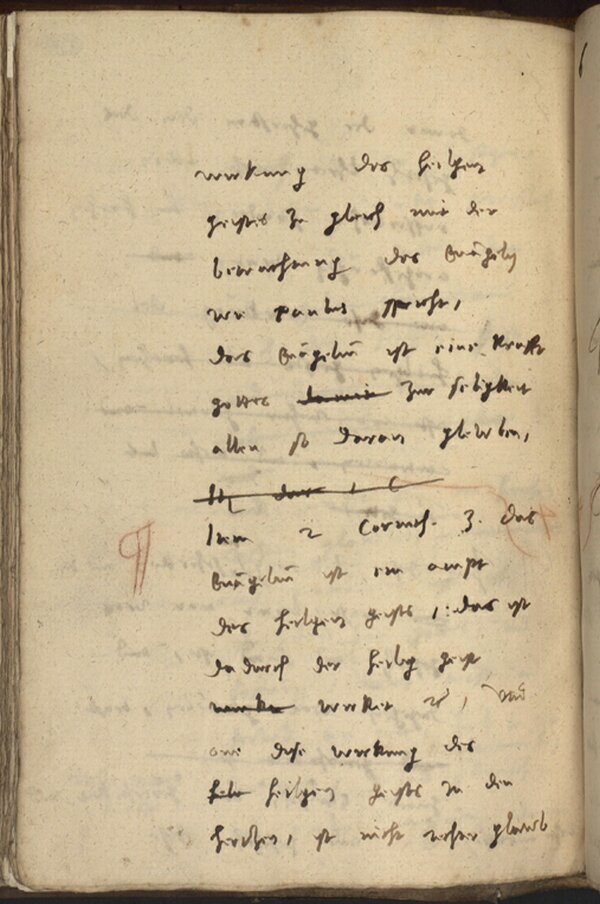 wirkung des heiligen
geistes zu gleich mit der
betrachtung des Evangelij
wie paulus spricht,
das Evangeliu ist eine krafft
gottes damit zur seligkeit
allen so daran glewben,
Item 2 Corinth. 3. das
Evangeliu ist ein ampt
des heiligen geists, das ist
dadurch der heilig geist
wirket wirket etc, Und
one dise wirkung des
heiligen geists in den
hertzen, ist nicht rechter glawb